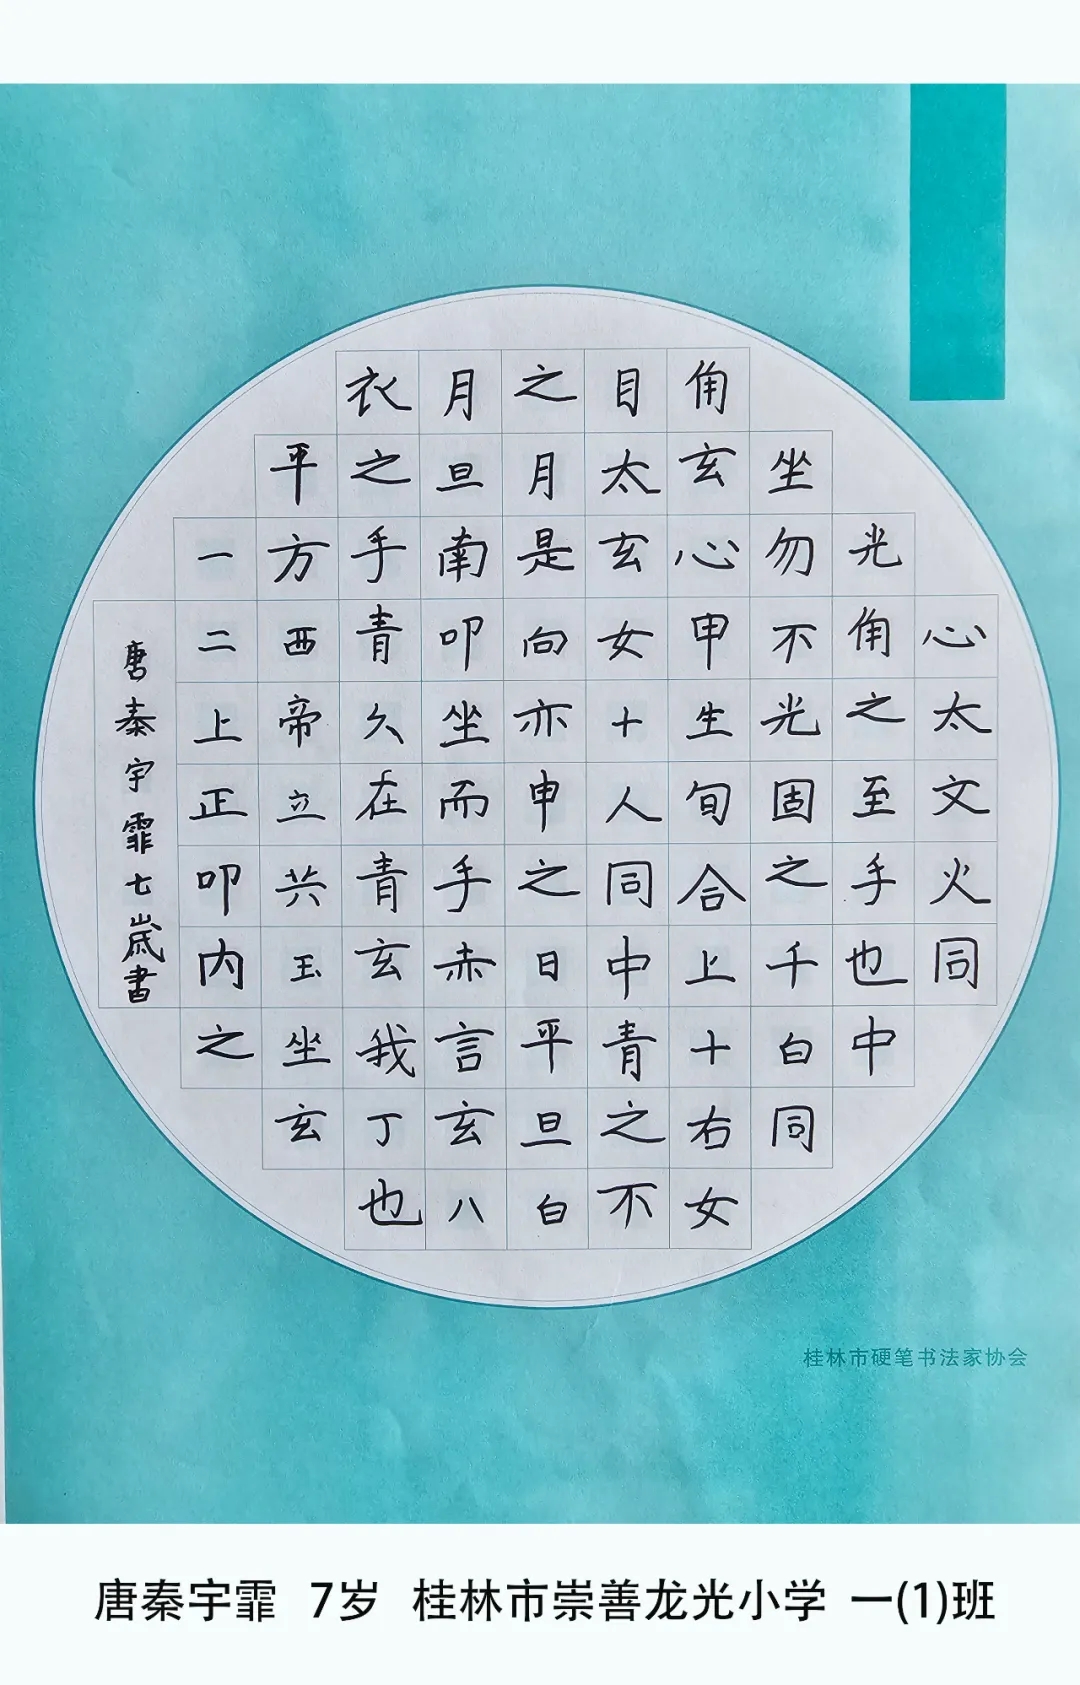 心太文火同
光角之至手也中
坐勿不光固之千白同
角玄心甲生旬合上十右女
目太玄女十人同中青之不
之月是向亦申之日平旦白
月旦南叩坐而手赤言玄八
衣之手青久在青玄我丁也
平方西帝立共玉坐玄
一二上正叩内之
唐秦宇霏七歲書
桂林市硬笔书法家协会
唐秦宇霏 7岁 桂林市崇善龙光小学 一(1)班